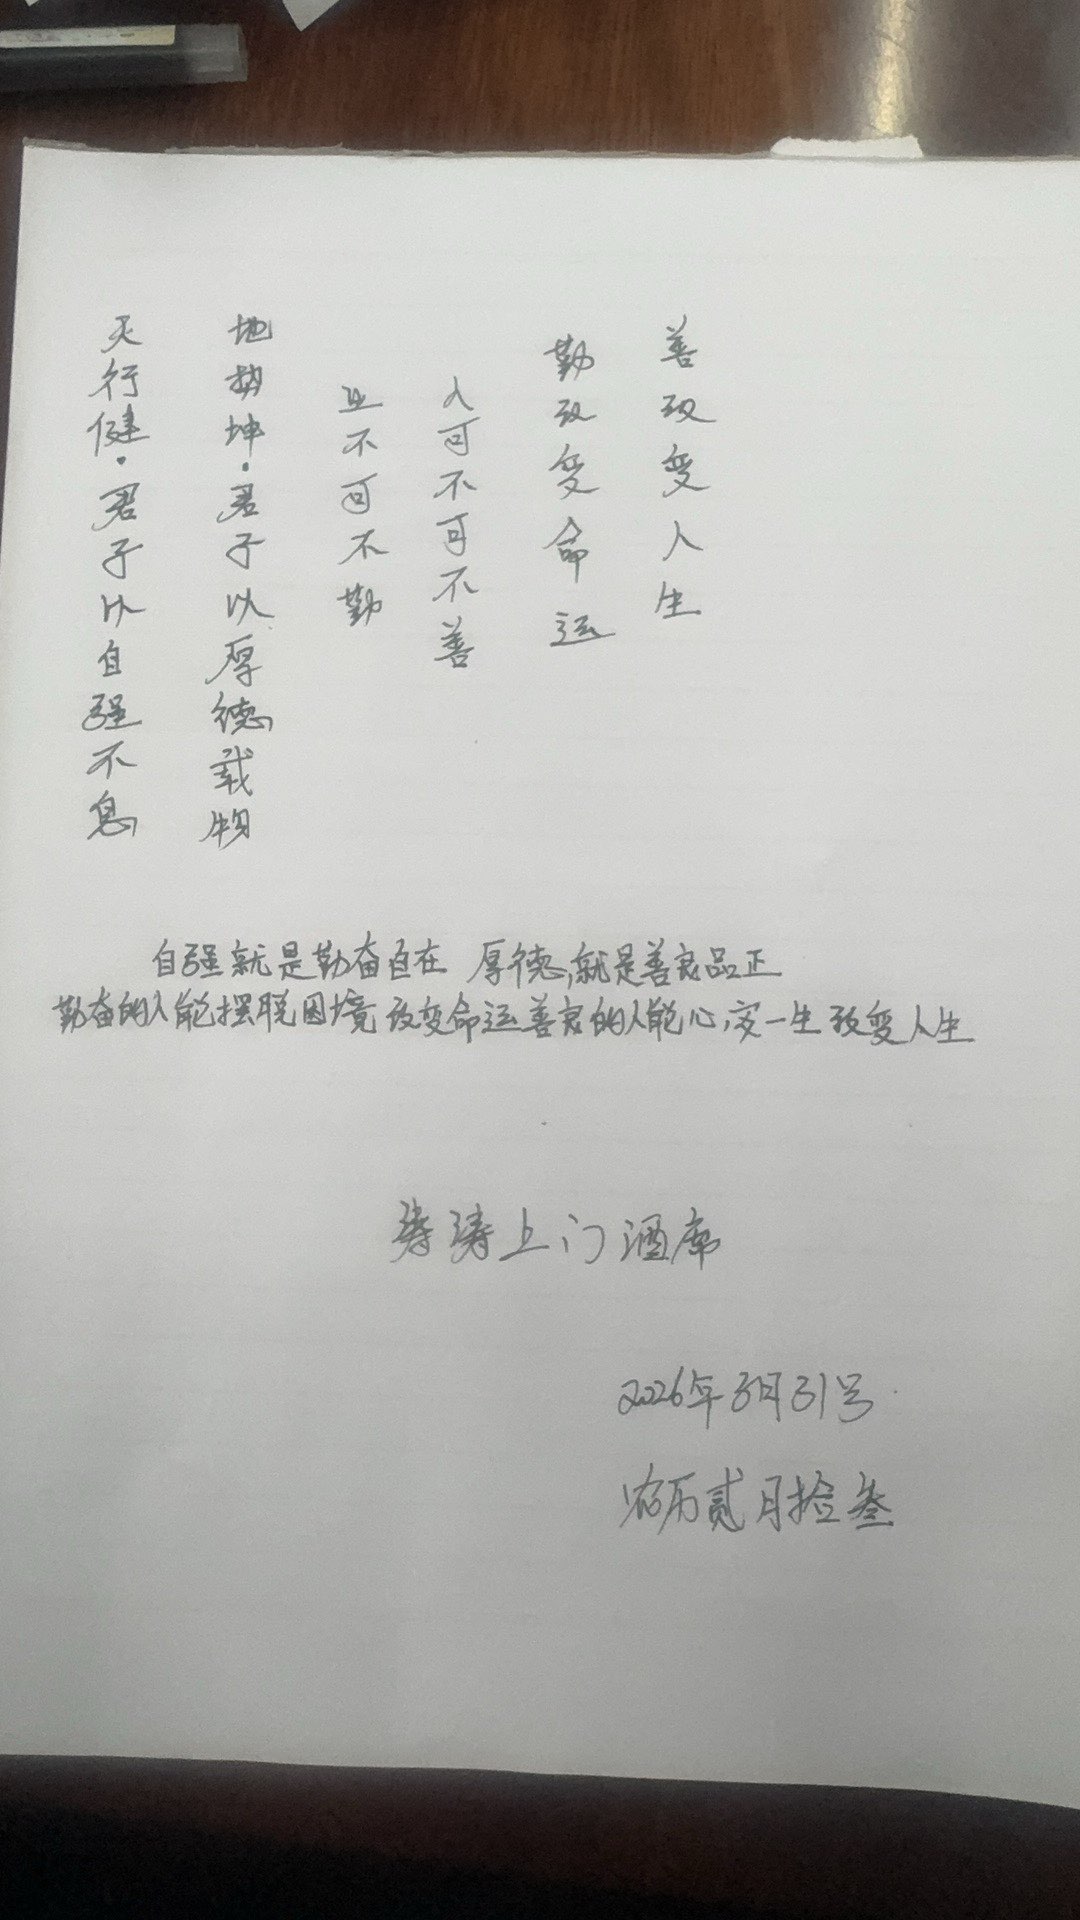 天行健·君子以自强不息
地势坤·君子以厚德载物
业不可不勤
人可不可不善
勤改变命运
善改变人生
自强就是勤奋自在 厚德,就是善良品正
勤奋的人能摆脱困境改变命运善良的人能心,安一生改变人生
涛涛上门酒席
2026年3月31号
农历贰月拾叁